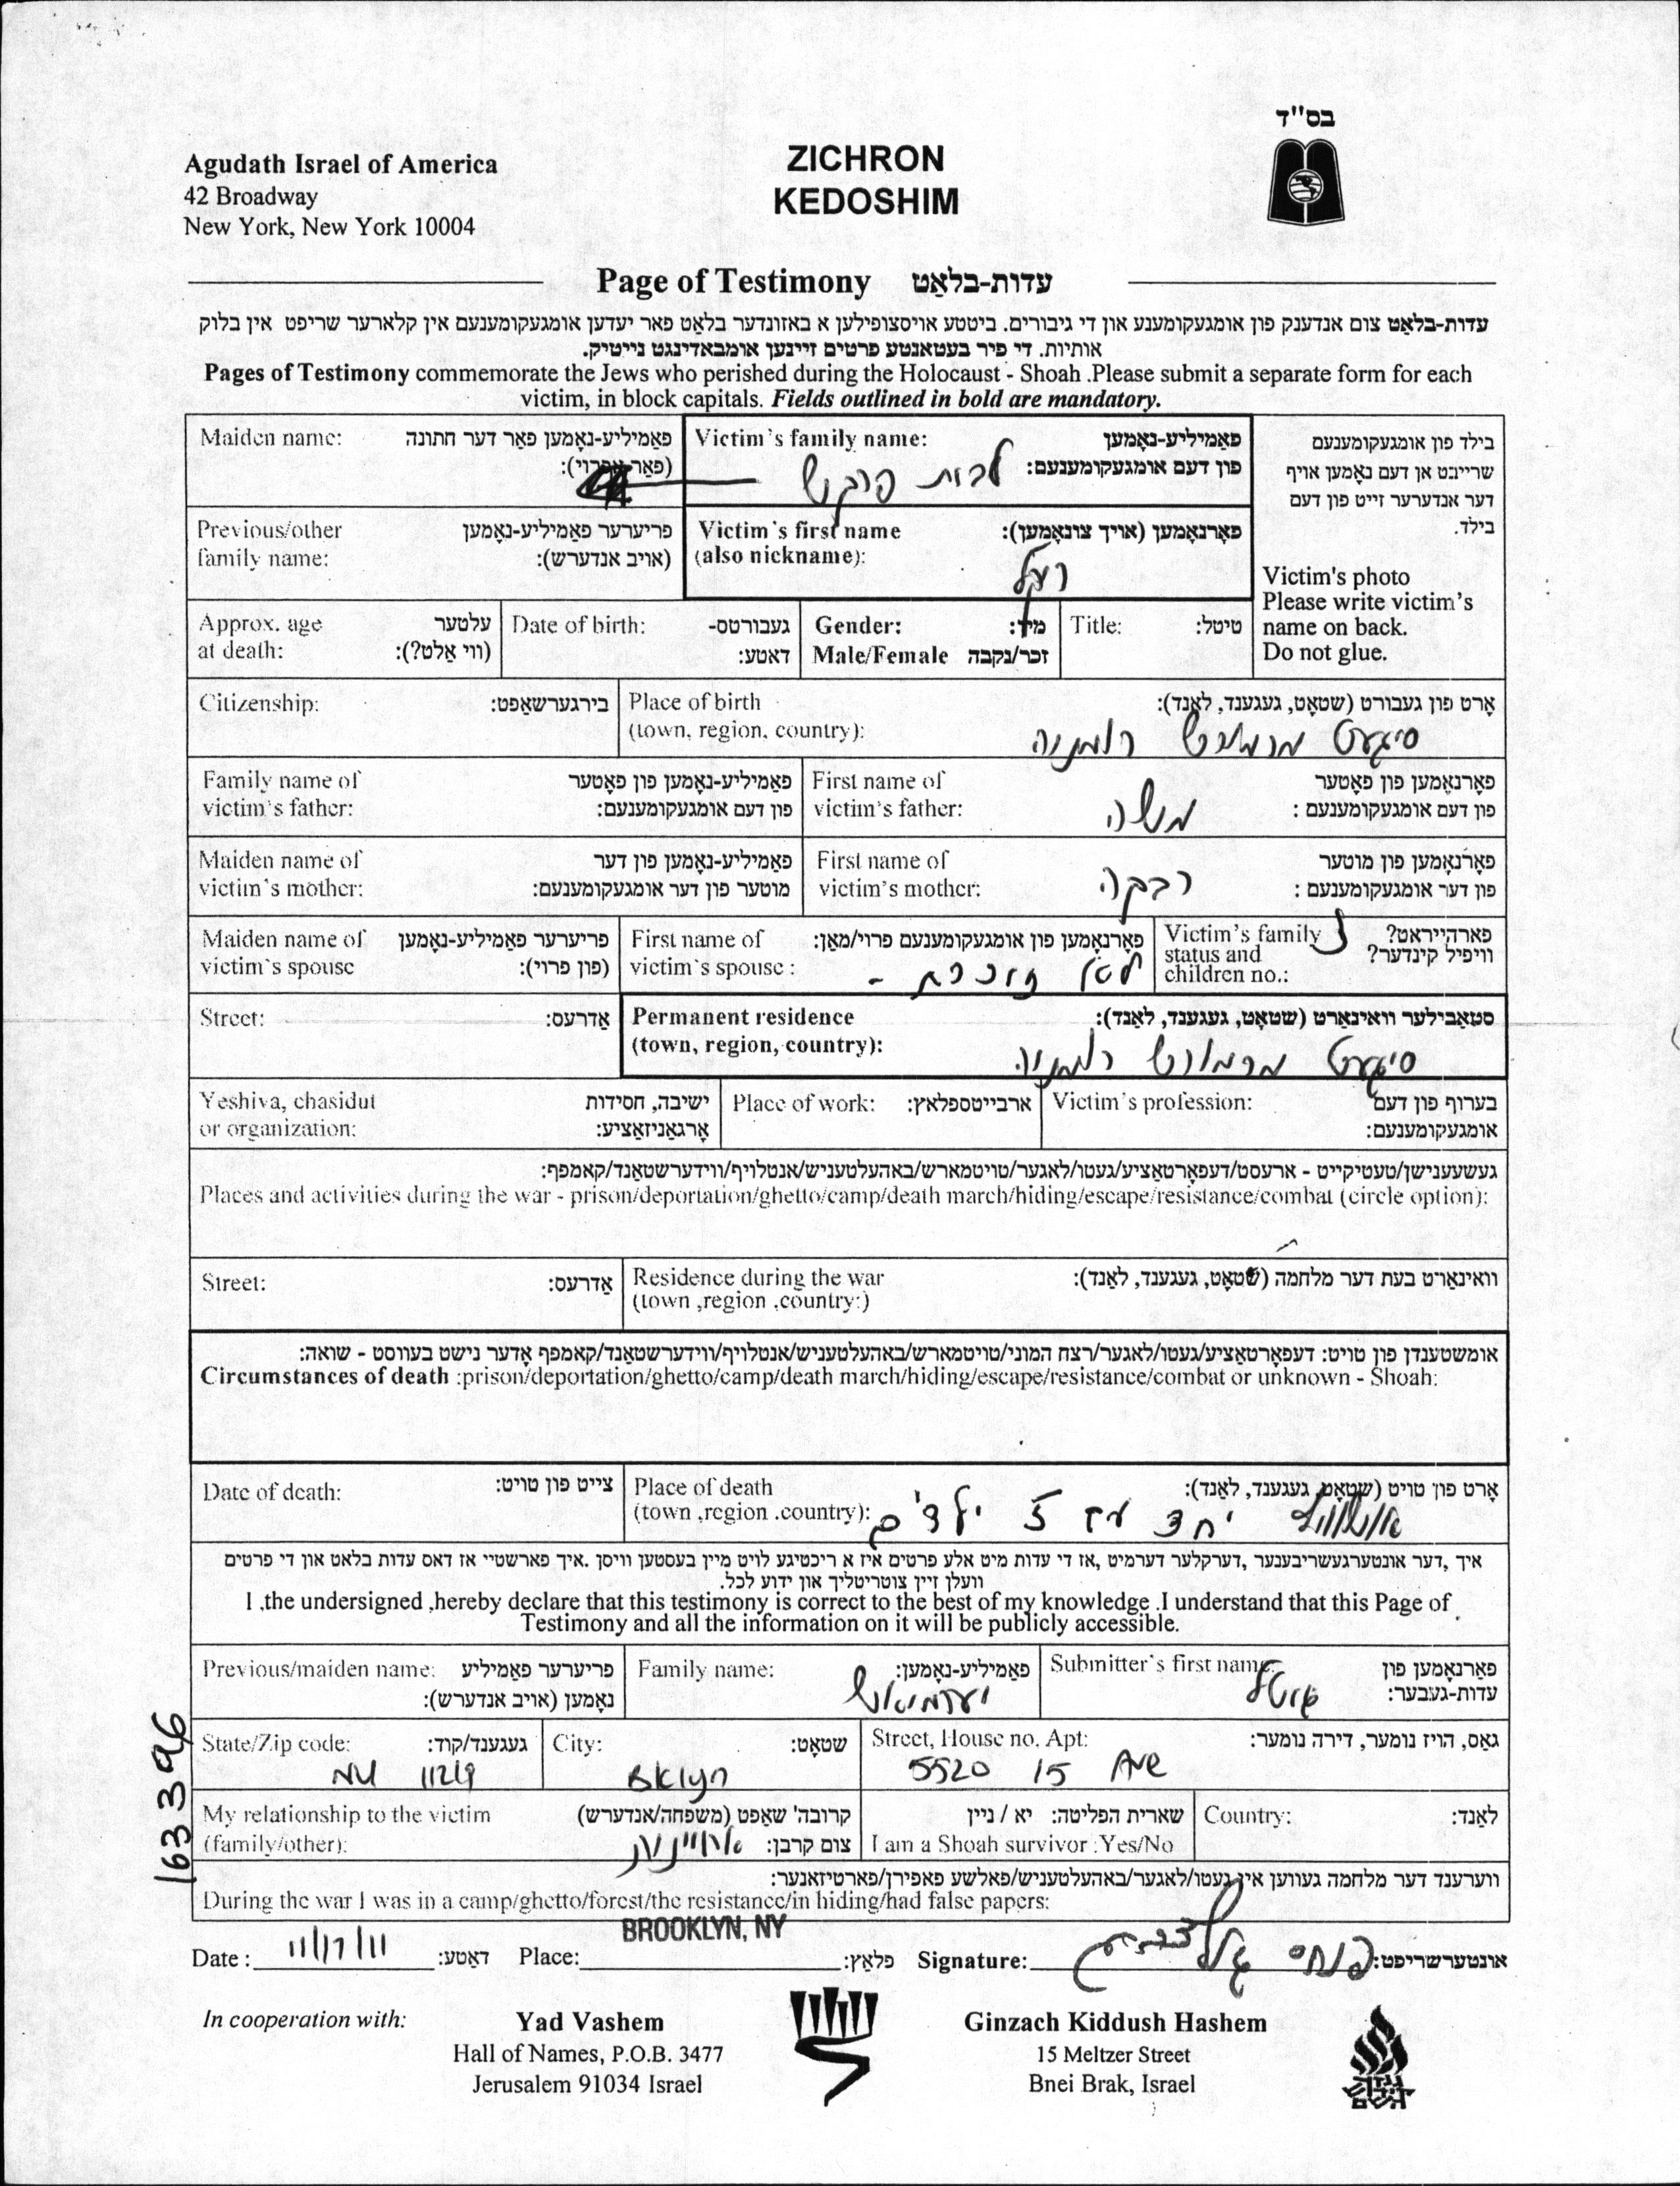 בס"ד
Agudath Israel of America
42 Broadway
New York, New York 10004
ZICHRON
KEDOSHIM
Page of Testimony עדות-בלאַט
עדות-בלאַט צום אנדענק פון אומגעקומענע און די גיבורים. ביטטע אויסצופילען א באזונדער בלאַט פאר יעדען אומגעקומענעם אין קלארער שריפט אין בלוק
אותיות. די פיר בעטאנטע פרטים זיינען אומבאדינגט נייטיק.
Pages of Testimony commemorate the Jews who perished during the Holocaust - Shoah .Please submit a separate form for each
victim, in block capitals. Fields outlined in bold are mandatory.
Maiden name: פאַמיליע-נאָמען פאַר דער חתונה
(פאַר אַפרוי):
Victim's family name: פאַמיליע-נאָמען
פון דעם אומגעקומענעם:
בילד פון אומגעקומענעם
שרייבט אן דעם נאָמען אויף
דער אנדערער זייט פון דעם
בילד.
Victim's photo
Please write victim's
name on back.
Do not glue.
Previous/other פריערער פאַמיליע-נאָמען
family name: (אויב אנדערש):
Victim's first name פאָרנאָמען (אויך צונאָמען):
(also nickname):
רעכל
Approx. age עלטער
at death: (ווי אַלט?):
Date of birth: געבורטס-
דאטע:
Gender: מין:
Male/Female זכר/נקבה
Title: טיטל:
Citizenship: בירגערשאַפט:
Place of birth אָרט פון געבורט (שטאָט, געגענד, לאַנד):
(town, region, country):
סיגעט מרמורש רומניה
Family name of פאַמיליע-נאָמען פון פאָטער
victim's father: פון דעם אומגעקומענעם:
First name of פאָרנאָמען פון פאָטער
victim's father: פון דעם אומגעקומענעם :
משה
Maiden name of פאַמיליע-נאָמען פון דער
victim's mother: מוטער פון דער אומגעקומענעם:
First name of פאָרנאָמען פון מוטער
victim's mother: פון דער אומגעקומענעם :
רבקה
Maiden name of פריערער פאַמיליע-נאָמען
victim's spouse (פון פרוי):
First name of פאָרנאָמען פון אומגעקומענעם פרוי/מאַן:
victim's spouse :
Victim's family פארהייראט?
status and וויפיל קינדער?
children no.:
Street: אַדרעס:
Permanent residence סטאַבילער וואינארט (שטאָט, געגענד, לאַנד):
(town, region, country):
סיגעט מרמורש רומניה
Yeshiva, chasidut ישיבה, חסידות
or organization: אָרגאַניזאַציע:
Place of work: ארבייטספלאץ:
Victim's profession: בערוף פון דעם
אומגעקומענעם:
געשעענישן/טעטיקייט - ארעסט/דעפאָרטאַציע/געטו/לאגער/טויטמארש/באהעלטעניש/אנטלויף/ווידערשטאַנד/קאמפף:
Places and activities during the war - prison/deportation/ghetto/camp/death march/hiding/escape/resistance/combat (circle option):
Street: אַדרעס:
Residence during the war וואינאַרט בעת דער מלחמה (שטאָט, געגענד, לאַנד):
(town ,region .country:)
אומשטענדן פון טויט: דעפאָרטאַציע/געטו/לאגער/רצח המוני/טויטמארש/באהעלטעניש/אנטלויף/ווידערשטאַנד/קאמפף אָדער נישט בעוווסט - שואה:
Circumstances of death :prison/deportation/ghetto/camp/death march/hiding/escape/resistance/combat or unknown - Shoah:
Date of death: צייט פון טויט:
Place of death אָרט פון טויט (שטאָט, געגענד, לאַנד):
(town ,region .country):
יחד עם 5 ילדים
איך ,דער אונטערגעשריבענער ,דערקלער דערמיט ,אז די עדות מיט אלע פרטים איז א ריכטיגע לויט מיין בעסטען וויסן .איך פארשטיי אז דאס עדות בלאט און די פרטים
וועלן זיין צוטריטליך און ידוע לכל.
I ,the undersigned ,hereby declare that this testimony is correct to the best of my knowledge .I understand that this Page of
Testimony and all the information on it will be publicly accessible.
Previous/maiden name: פריערער פאַמיליע
נאָמען (אויב אנדערש):
Family name: פאַמיליע-נאָמען:
Submitter's first name: פאַרנאָמען פון
עדות-געבער:
State/Zip code: געגענד/קוד:
NY 11219
City: שטאָט:
Bklyn
Street, House no. Apt: גאַס, הויז נומער, דירה נומער:
5520 15 Ave
My relationship to the victim קרובה' שאַפט (משפחה/אנדערש)
(family/other): צום קרבן:
שארית הפליטה: יא / ניין
I am a Shoah survivor :Yes/No
Country: לאַנד:
ווערענד דער מלחמה געווען אין געטו/לאגער/באהעלטעניש/פאלשע פאפירן/פארטיזאנער:
During the war I was in a camp/ghetto/forest/the resistance/in hiding/had false papers:
Date : 11/17/11 דאַטע:
Place: BROOKLYN, NY פלאַץ:
Signature: אונטערשריפט:
163396
In cooperation with:
Yad Vashem
Hall of Names, P.O.B. 3477
Jerusalem 91034 Israel
Ginzach Kiddush Hashem
15 Meltzer Street
Bnei Brak, Israel